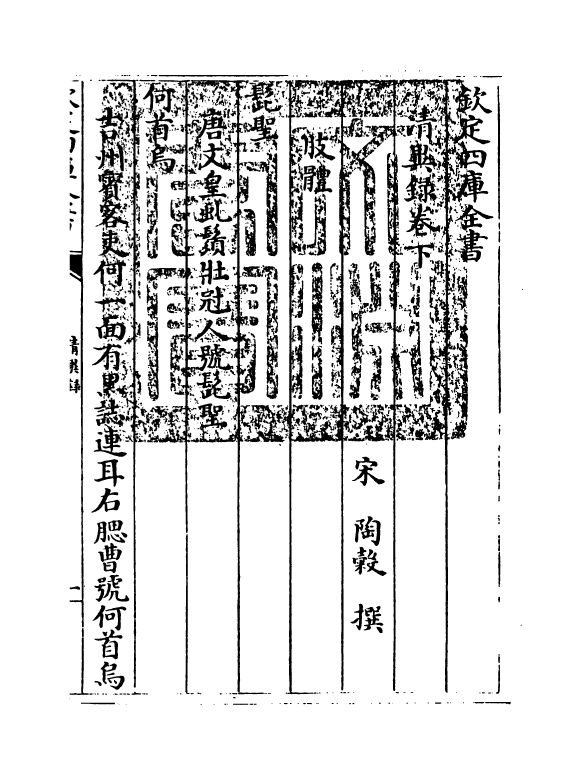 欽定四庫全書
清異録卷下
宋 陶穀 撰
肢體
髭聖
唐文皇虬鬚壯冠人號髭聖
何首烏
吉州賓客吏何一面有黒誌連耳右腮曹號何首烏
清異録
一